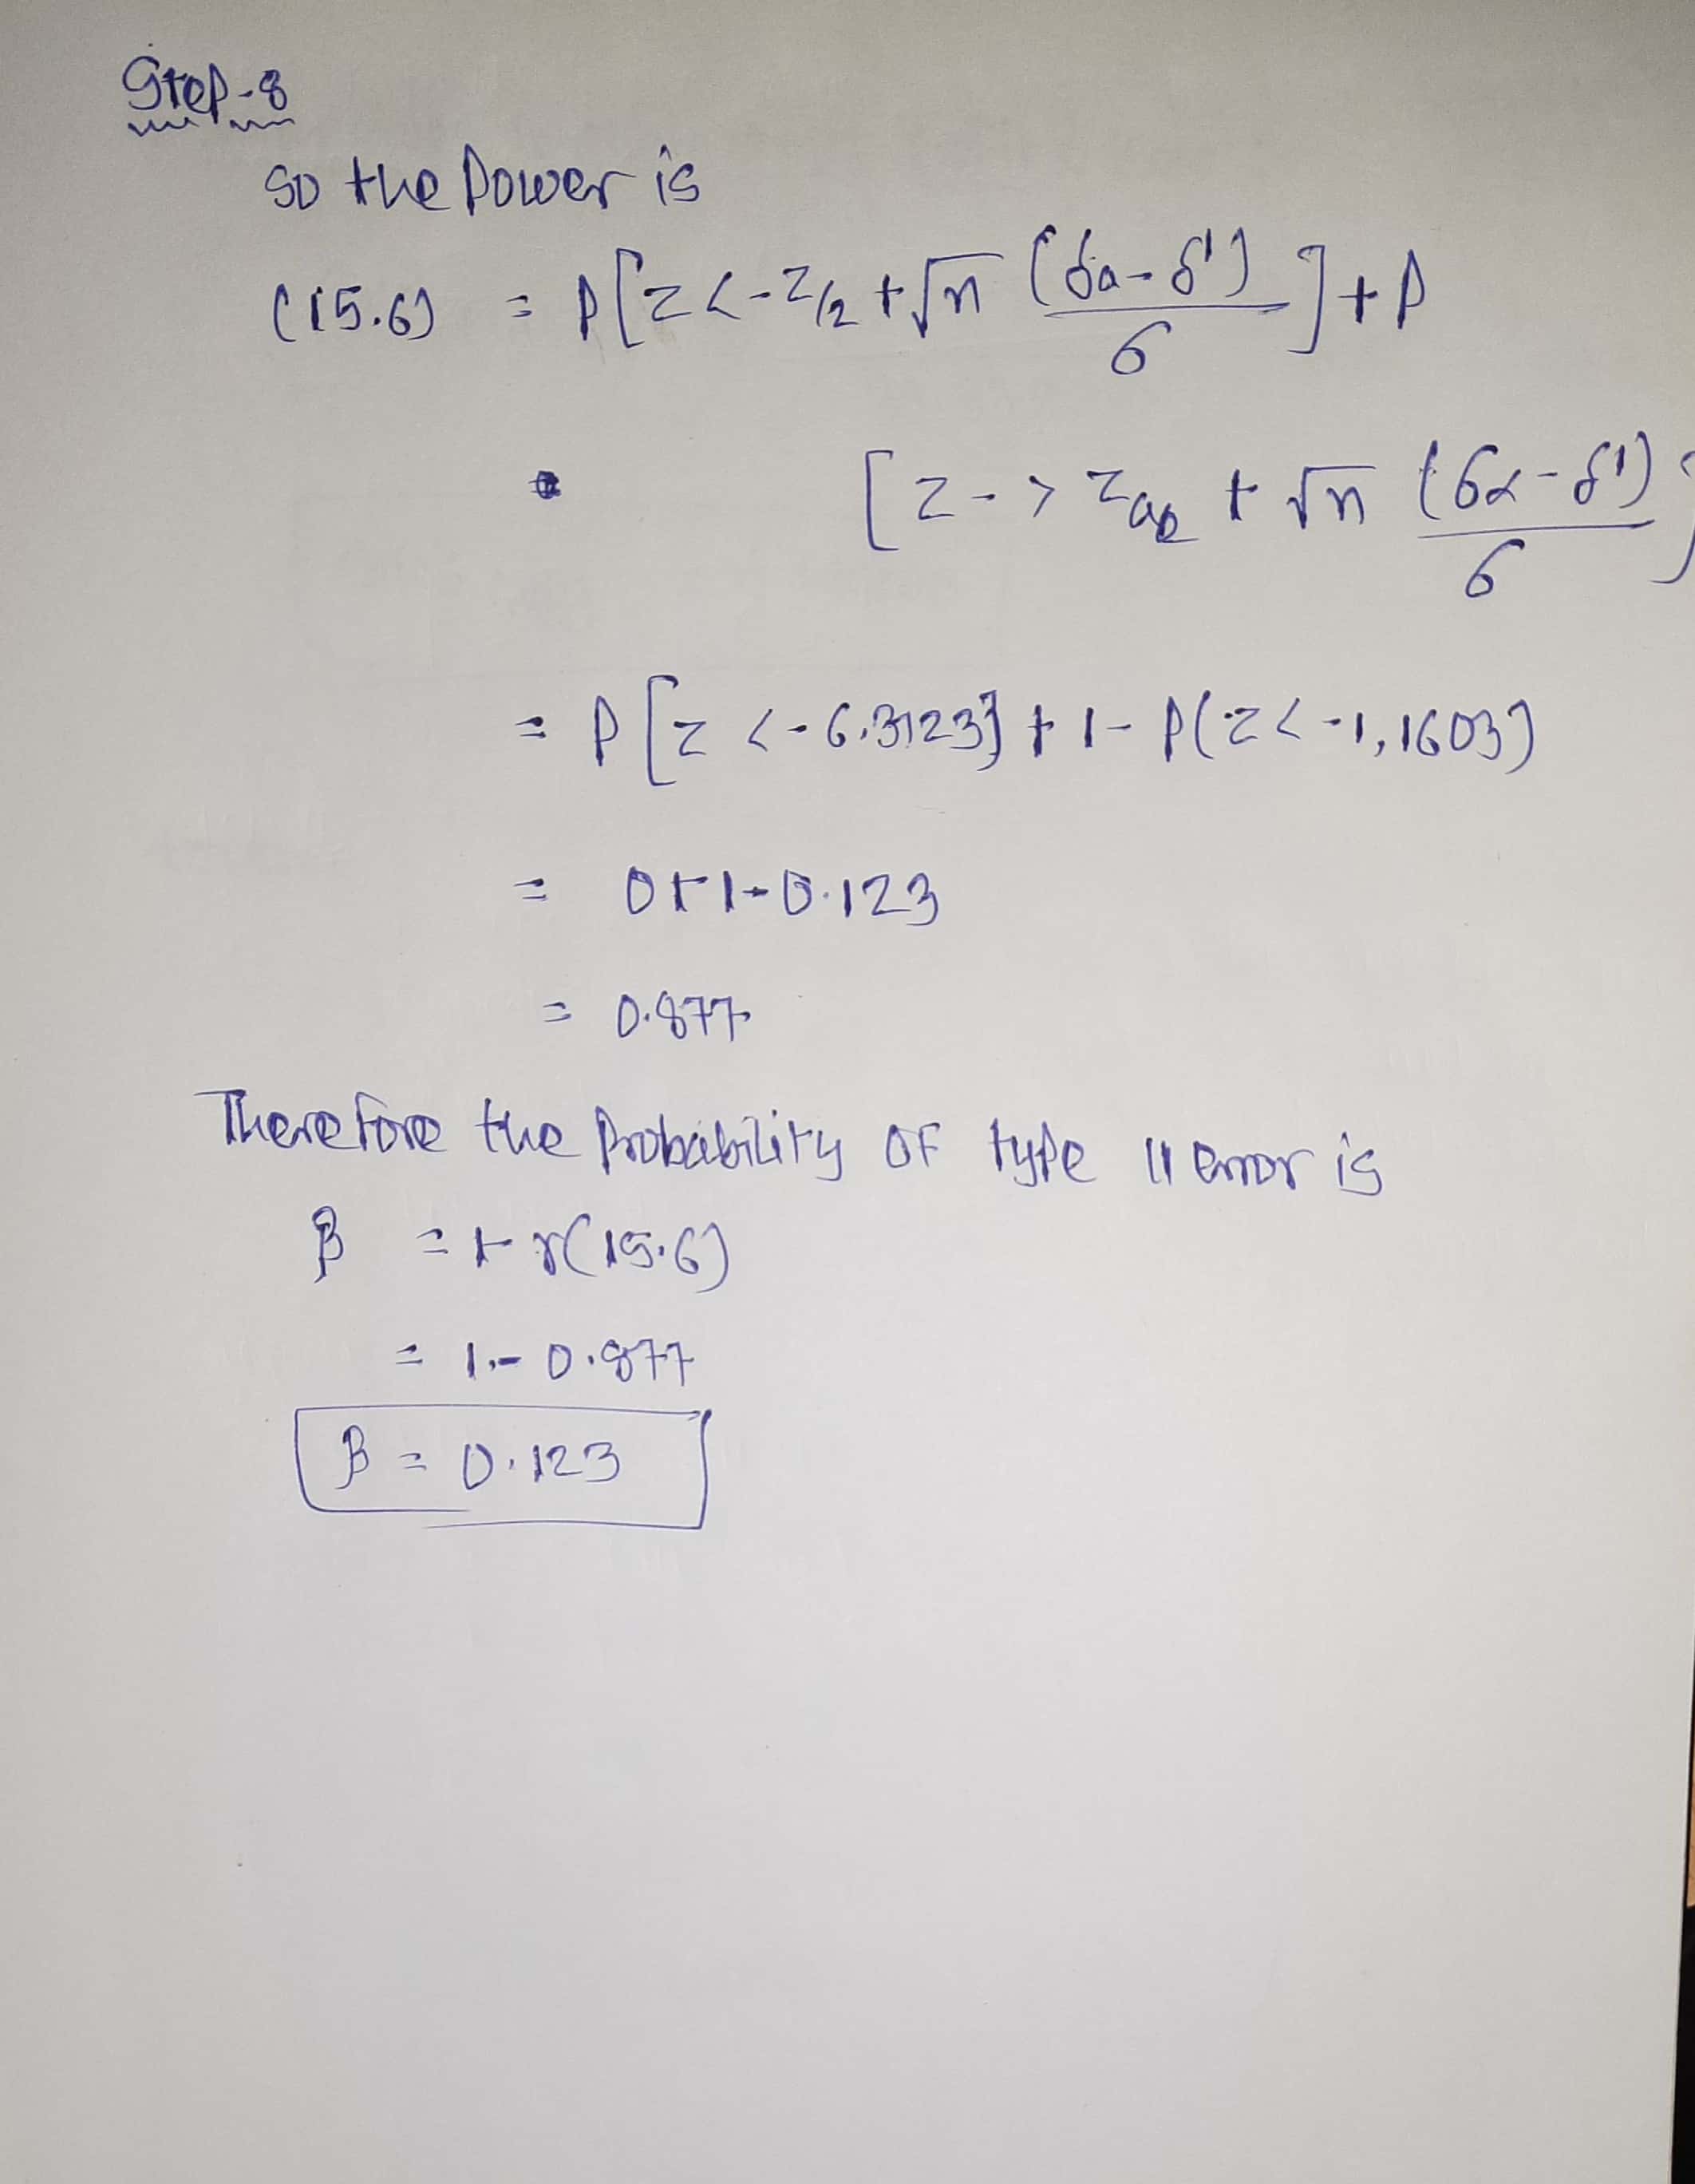 Step-8
so the Power is
(15.6) = P[z < -z/2 + √n (δa - δ')/6 ] + P
[z - > zα/2 + √n (δα - δ')/6 ]
= P[z < -6.3123} + 1 - P(z < -1,1603)
= 0+1-0.123
= 0.877
Therefore the Probability of type II error is
β = 1- γ(15.6)
= 1.- 0.877
β = 0.123